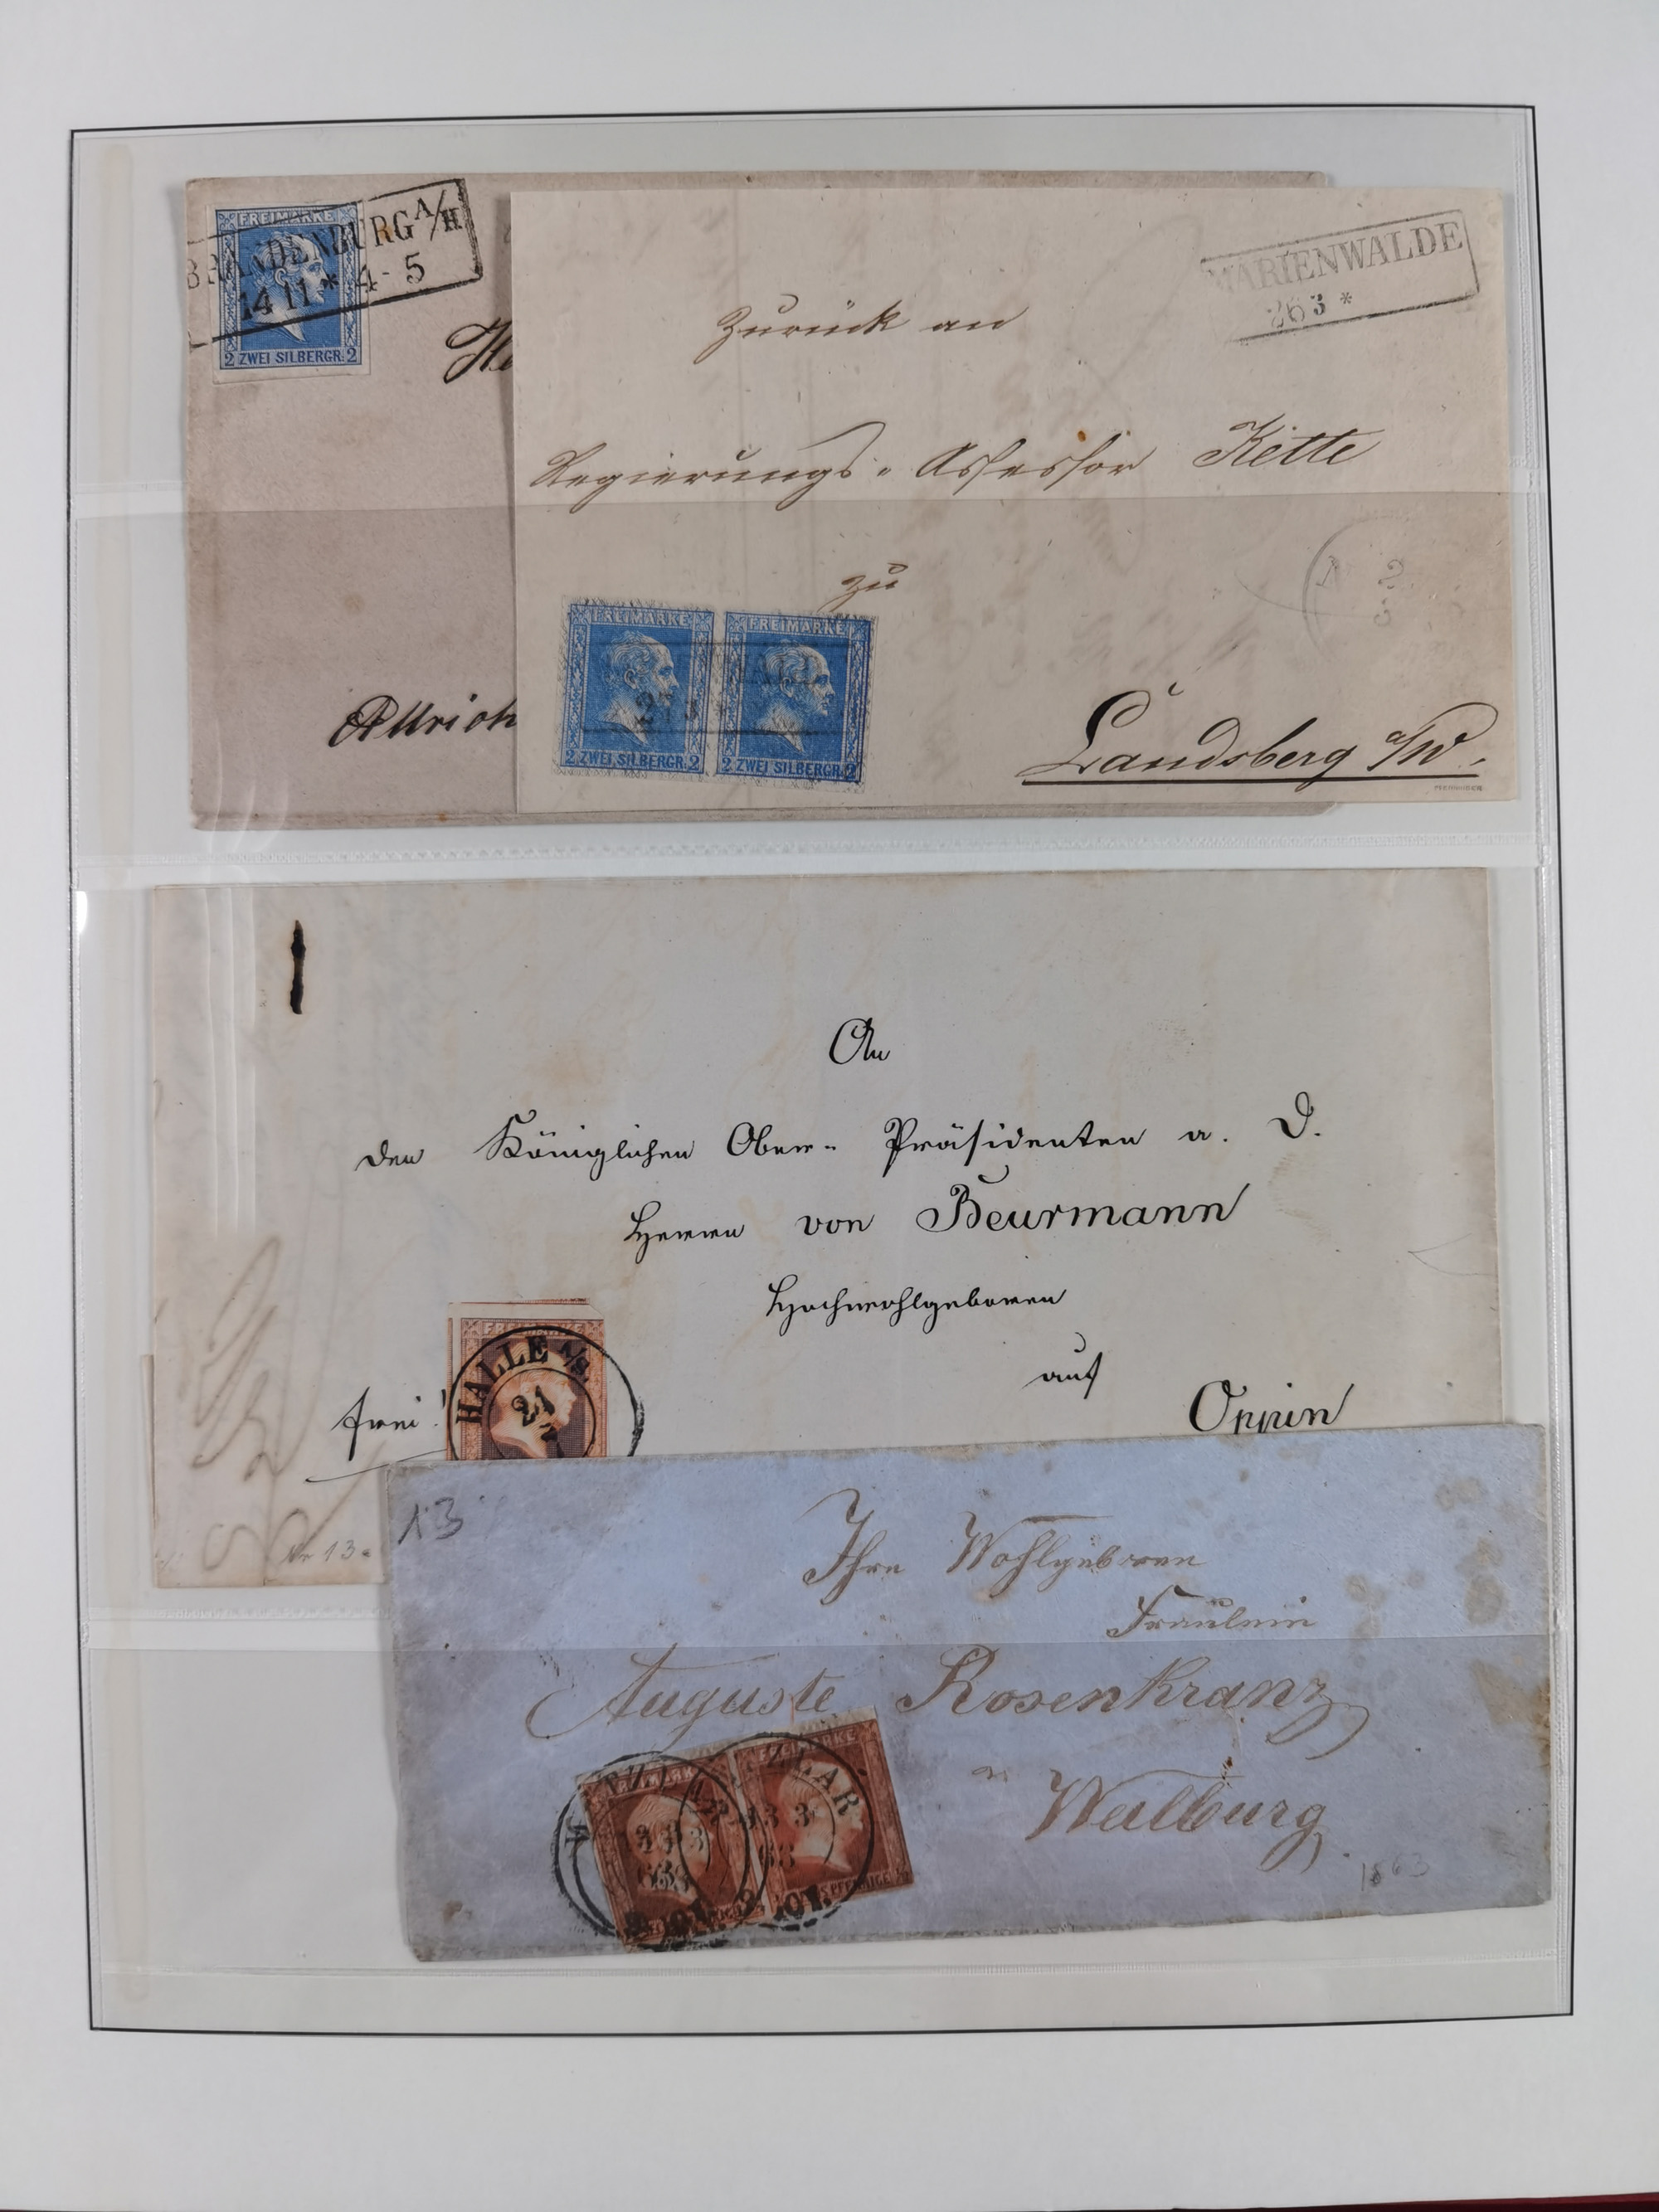 FREIMARKE
BRANDENBURG A/H
14 11 * 4- 5
2 ZWEI SILBERGR. 2
MARIENWALDE
26 3 *
Zurück an
Regierungs-Assessor Kette
zu
FREIMARKE FREIMARKE
2 ZWEI SILBERGR. 2 2 ZWEI SILBERGR. 2
Landsberg a/W.
An
den Königlichen Ober-Präsidenten a. D.
Herrn von Beurmann
Hochwohlgeboren
auf
Oppin
frei!
FREIMARKE
HALLE A/S.
21
2
No 13a
13
Ihre Wohlgeboren
Fräulein
Auguste Rosenkranz
Weilburg
FREIMARKE FREIMARKE
WETZLAR
13 3
63
1863